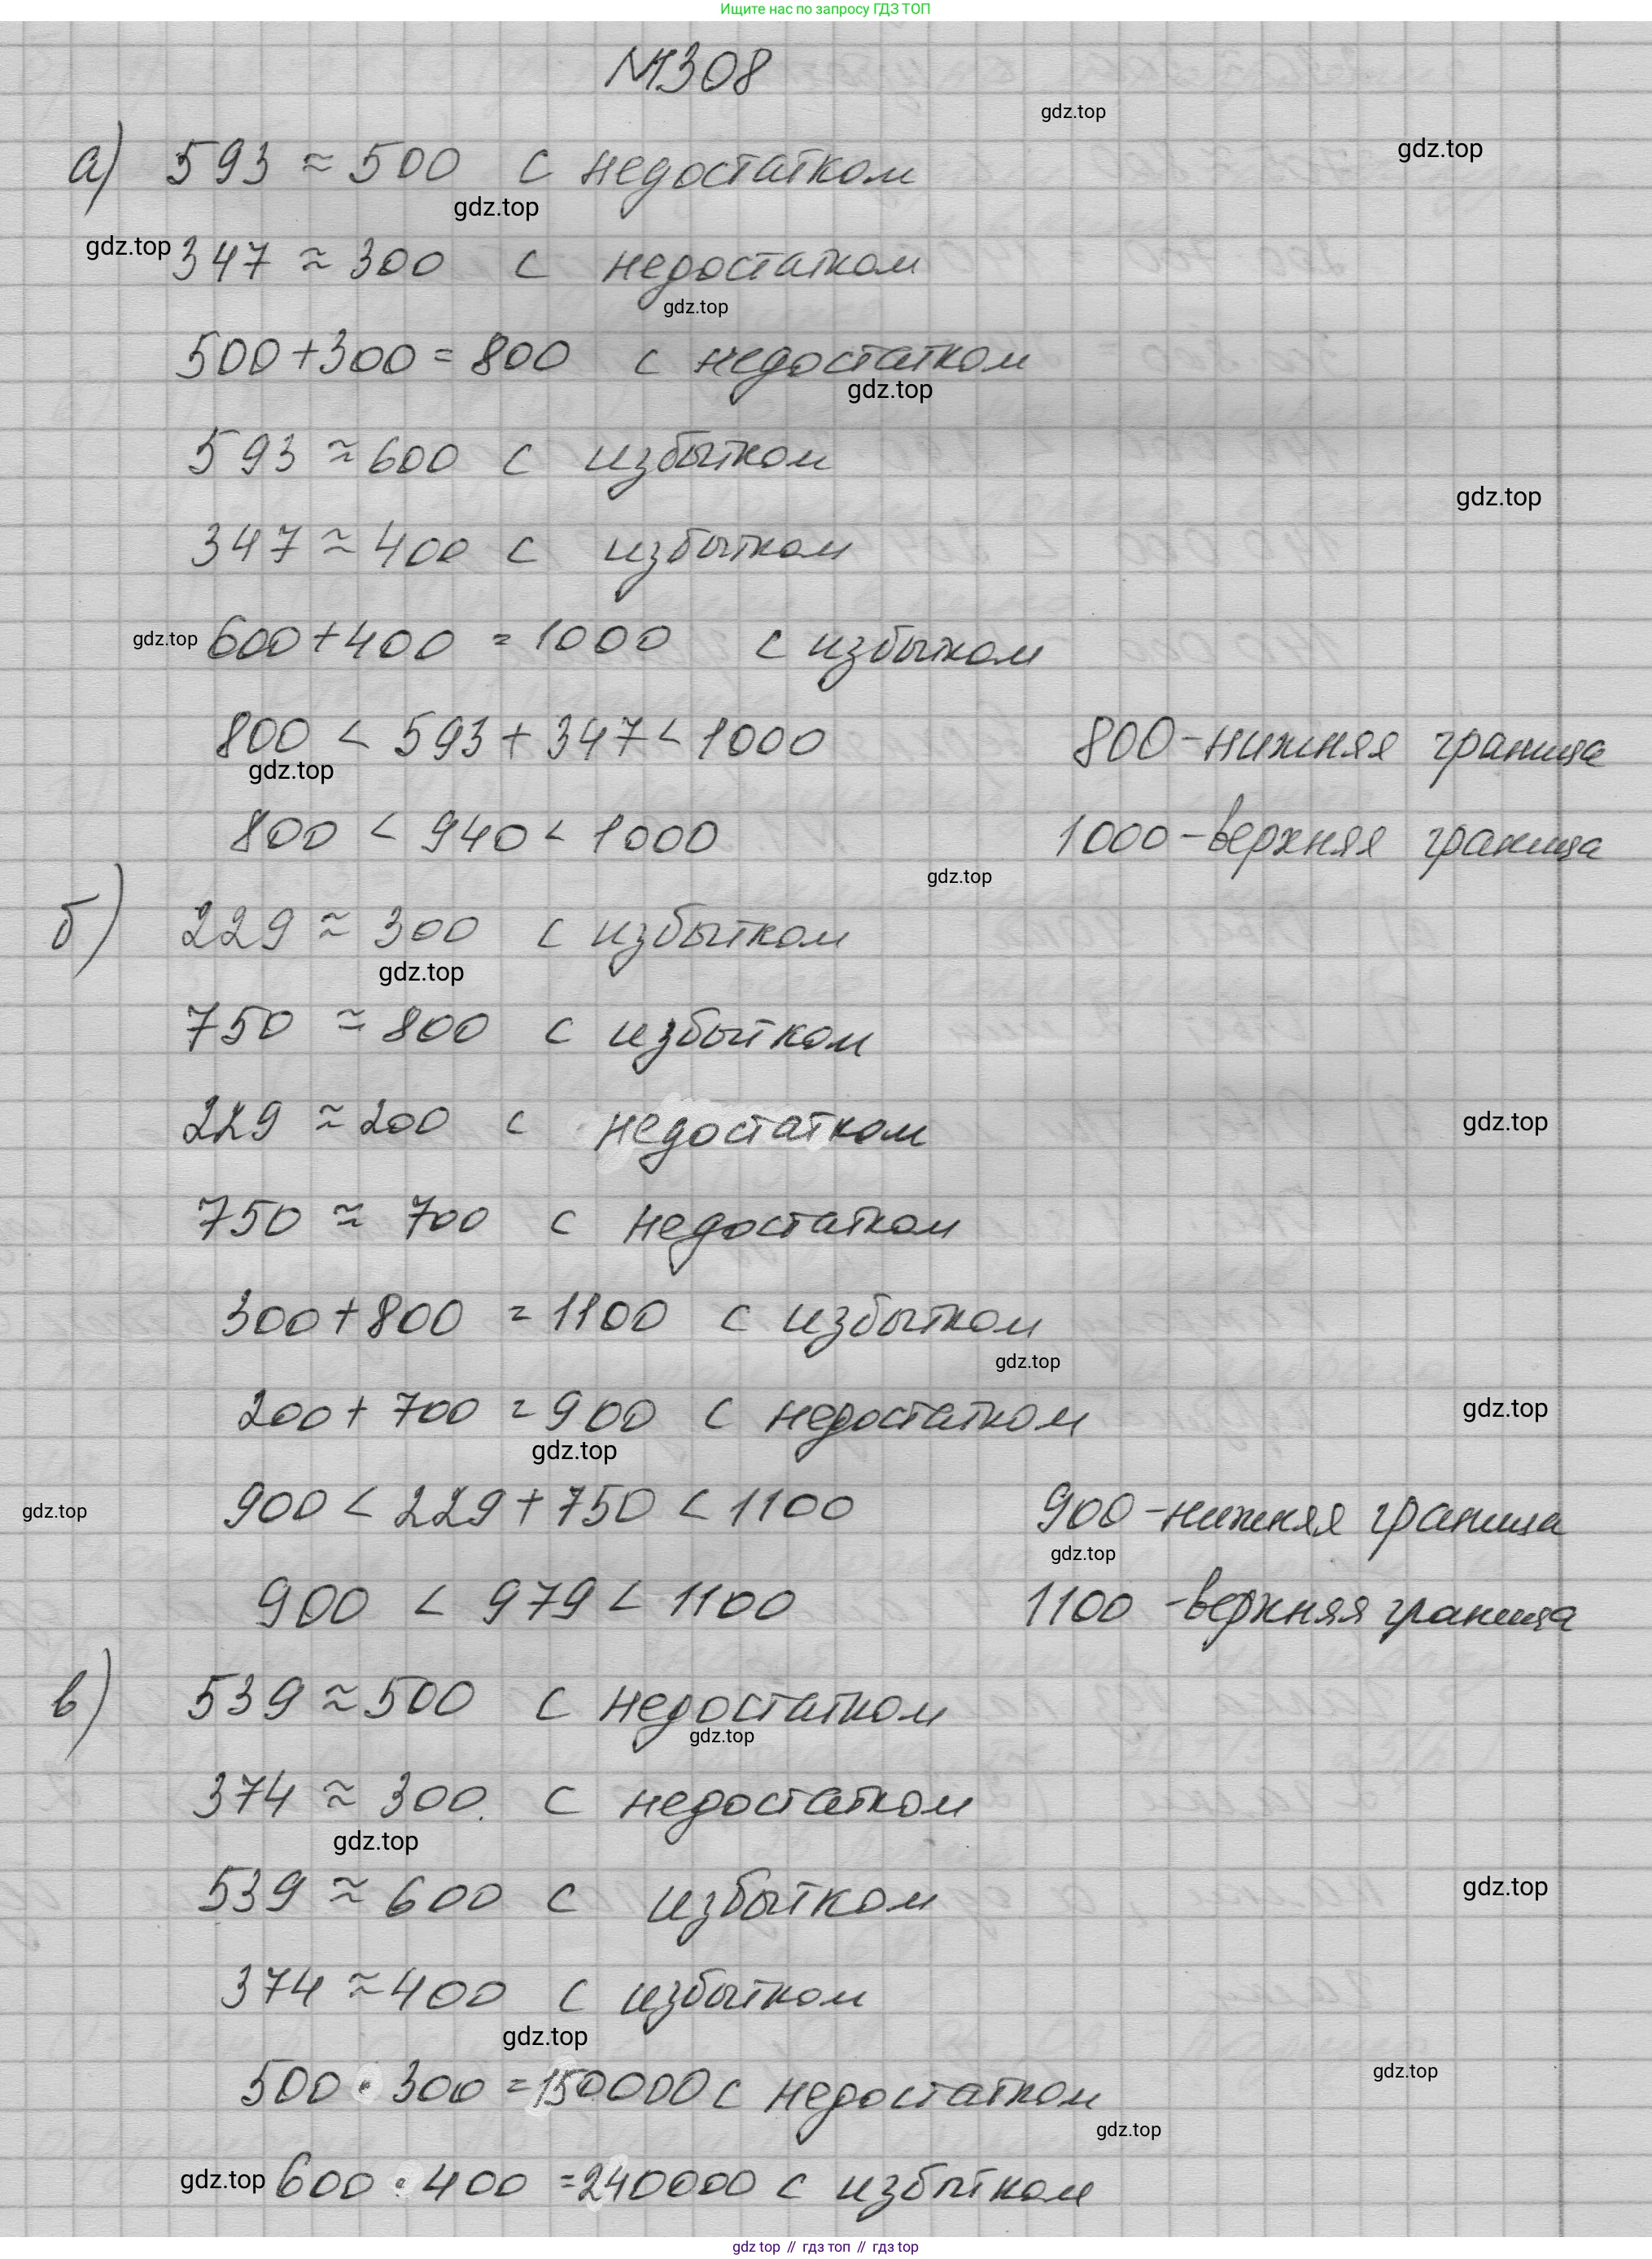 Ищите нас по запросу ГДЗ ТОП
№308
gdz.top
gdz.top
а) 593 ≈ 500 с недостатком
gdz.top
gdz.top
347 ≈ 300 с недостатком
gdz.top
500+300 = 800 с недостатком
gdz.top
593 ≈ 600 с избытком
gdz.top
347 ≈ 400 с избытком
gdz.top
600+400 = 1000 с избытком
800 < 593 + 347 < 1000 800-нижняя граница
gdz.top
800 < 940 < 1000 1000-верхняя граница
gdz.top
б) 229 ≈ 300 с избытком
gdz.top
750 ≈ 800 с избытком
229 ≈ 200 с недостатком
gdz.top
750 ≈ 700 с недостатком
300+800 = 1100 с избытком
gdz.top
200+700 = 900 с недостатком
gdz.top
gdz.top
gdz.top
900 < 229+750 < 1100 900-нижняя граница
gdz.top
900 < 979 < 1100 1100-верхняя граница
в) 539 ≈ 500 с недостатком
gdz.top
374 ≈ 300. с недостатком
gdz.top
539 ≈ 600 с избытком
gdz.top
374 ≈ 400 с избытком
gdz.top
500 • 300 = 150000 с недостатком
gdz.top
gdz.top
gdz.top
600 • 400 = 240000 с избытком
gdz top // гдз топ // гдз top